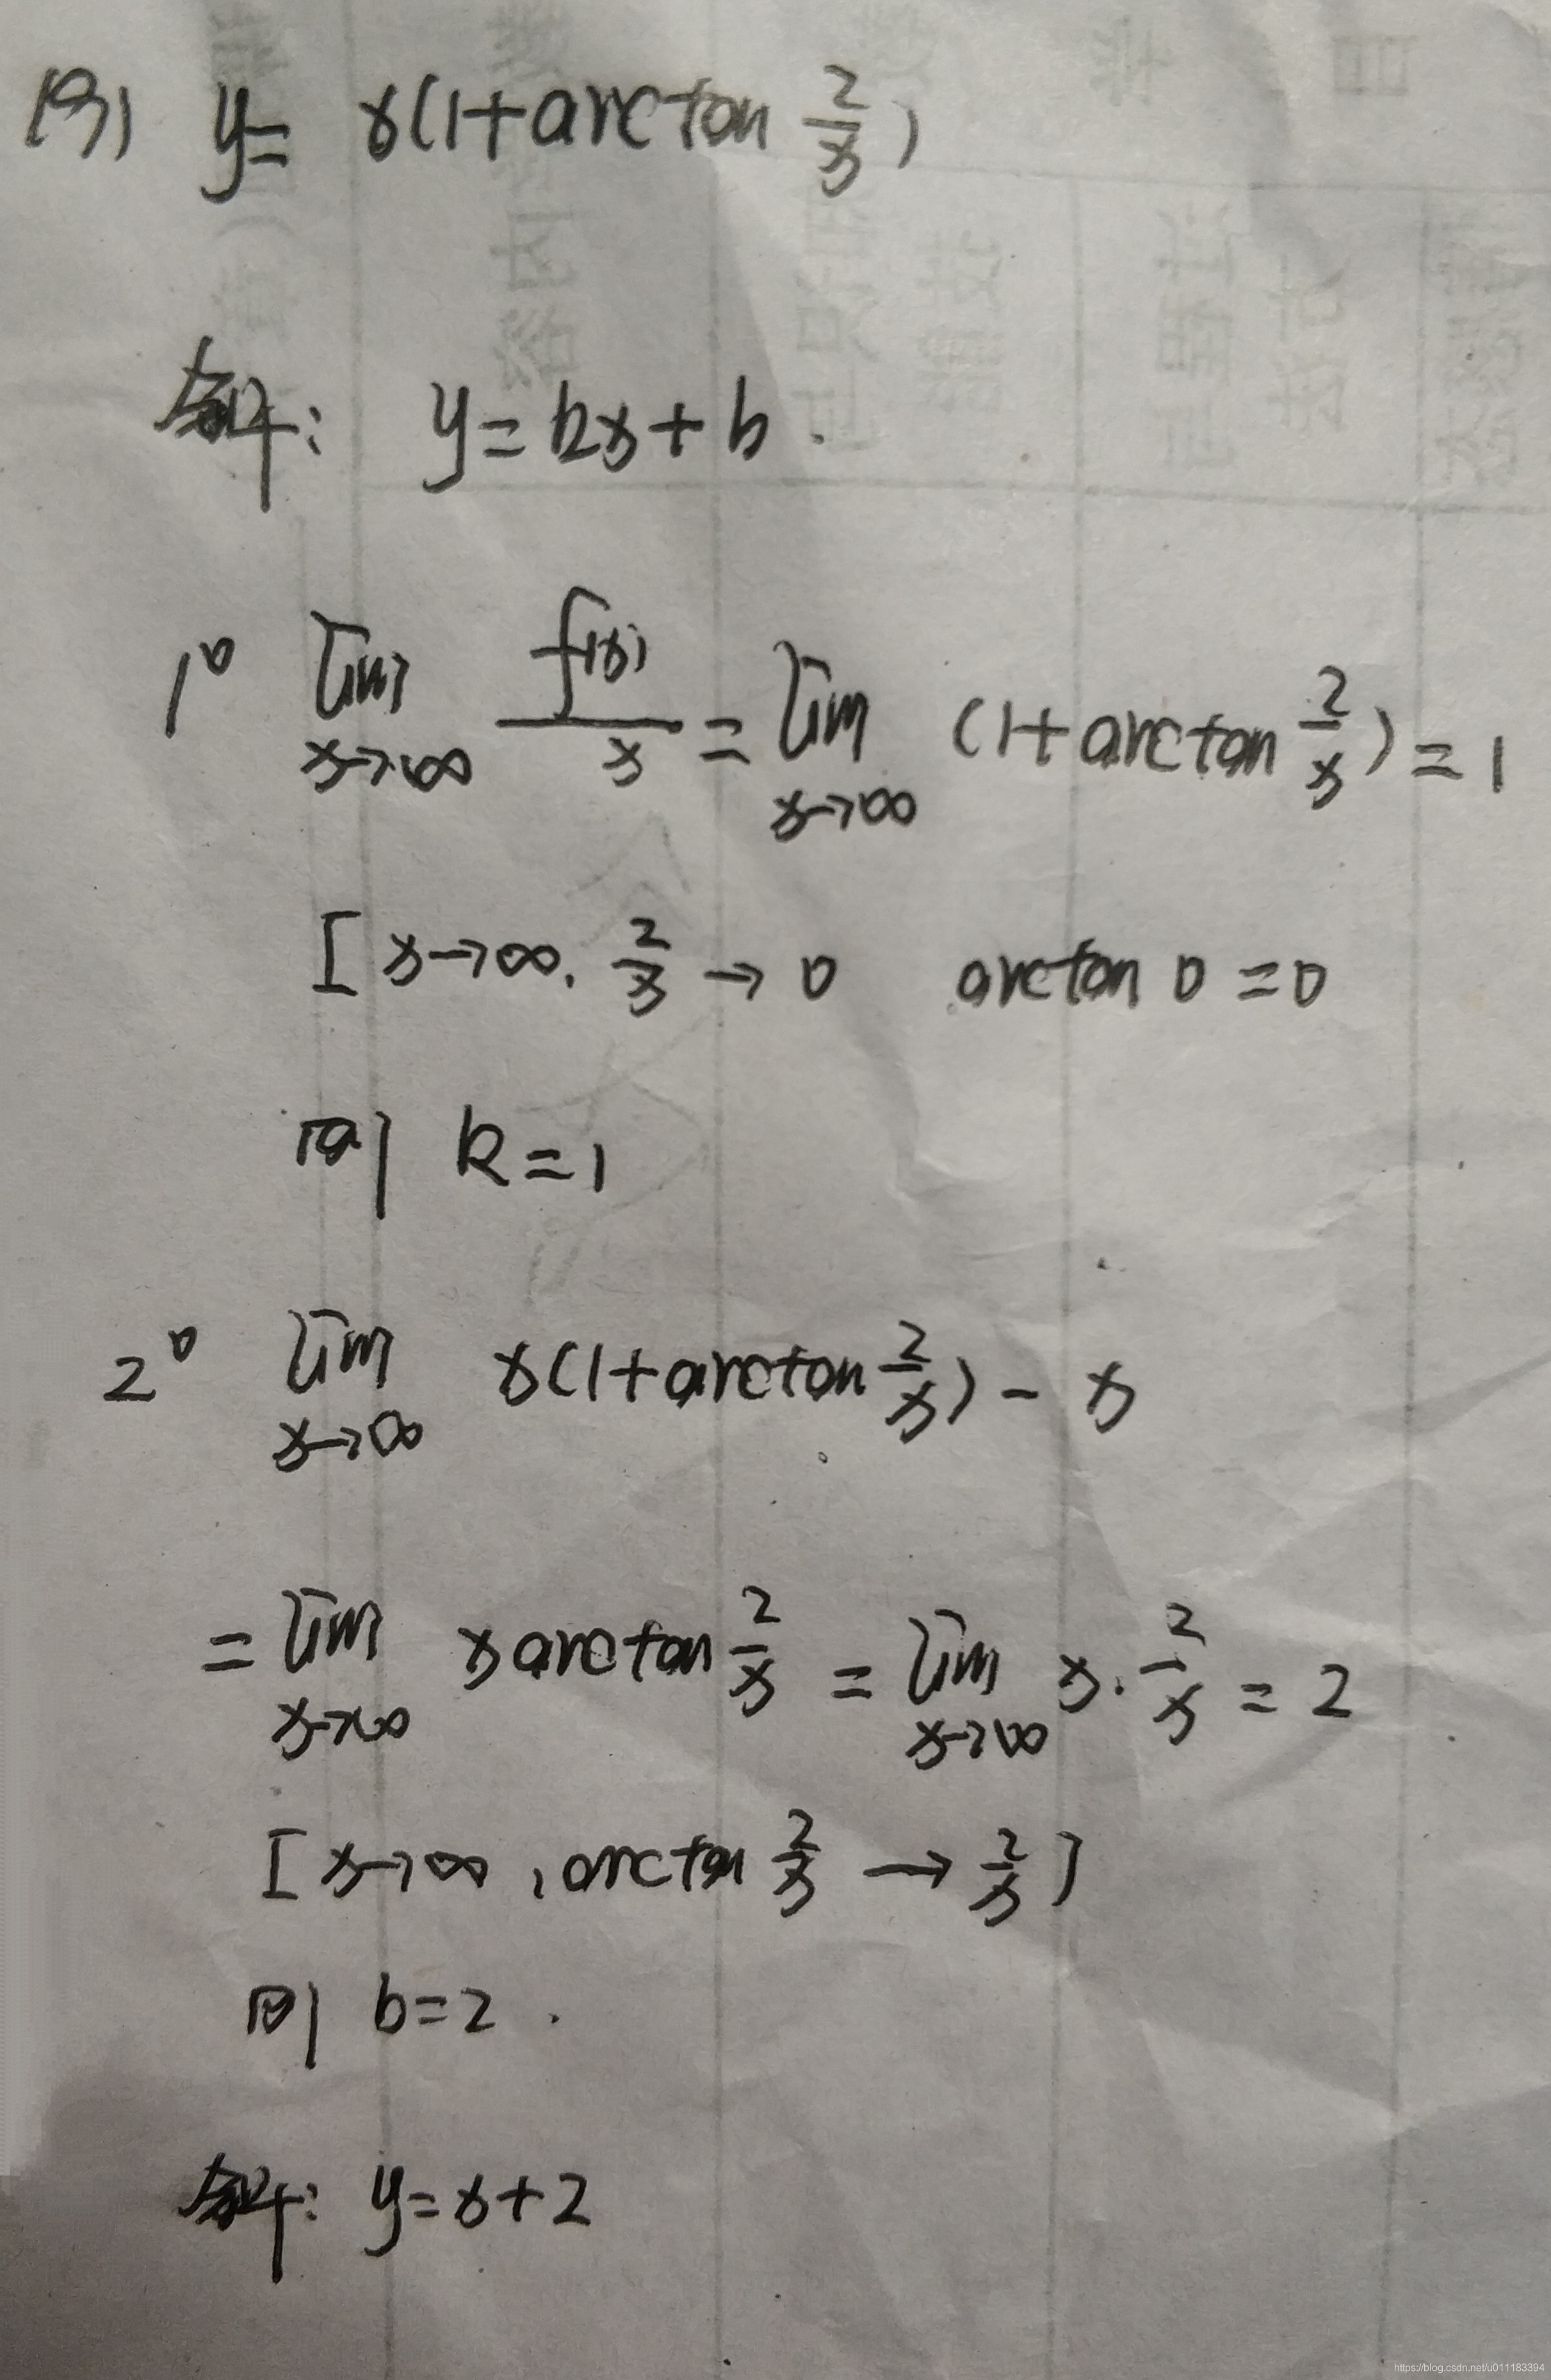 例 y = x(1+arctan 2/x)
斜: y=kx+b.
1° lim x→∞ f(x)/x = lim x→∞ (1+arctan 2/x) = 1
[x→∞, 2/x → 0 arctan 0 = 0
则 k=1
2° lim x→∞ x(1+arctan 2/x) - x
= lim x→∞ x arctan 2/x = lim x→∞ x · 2/x = 2
[x→∞, arctan 2/x → 2/x]
则 b=2.
斜: y=x+2
https://blog.csdn.net/u011183394